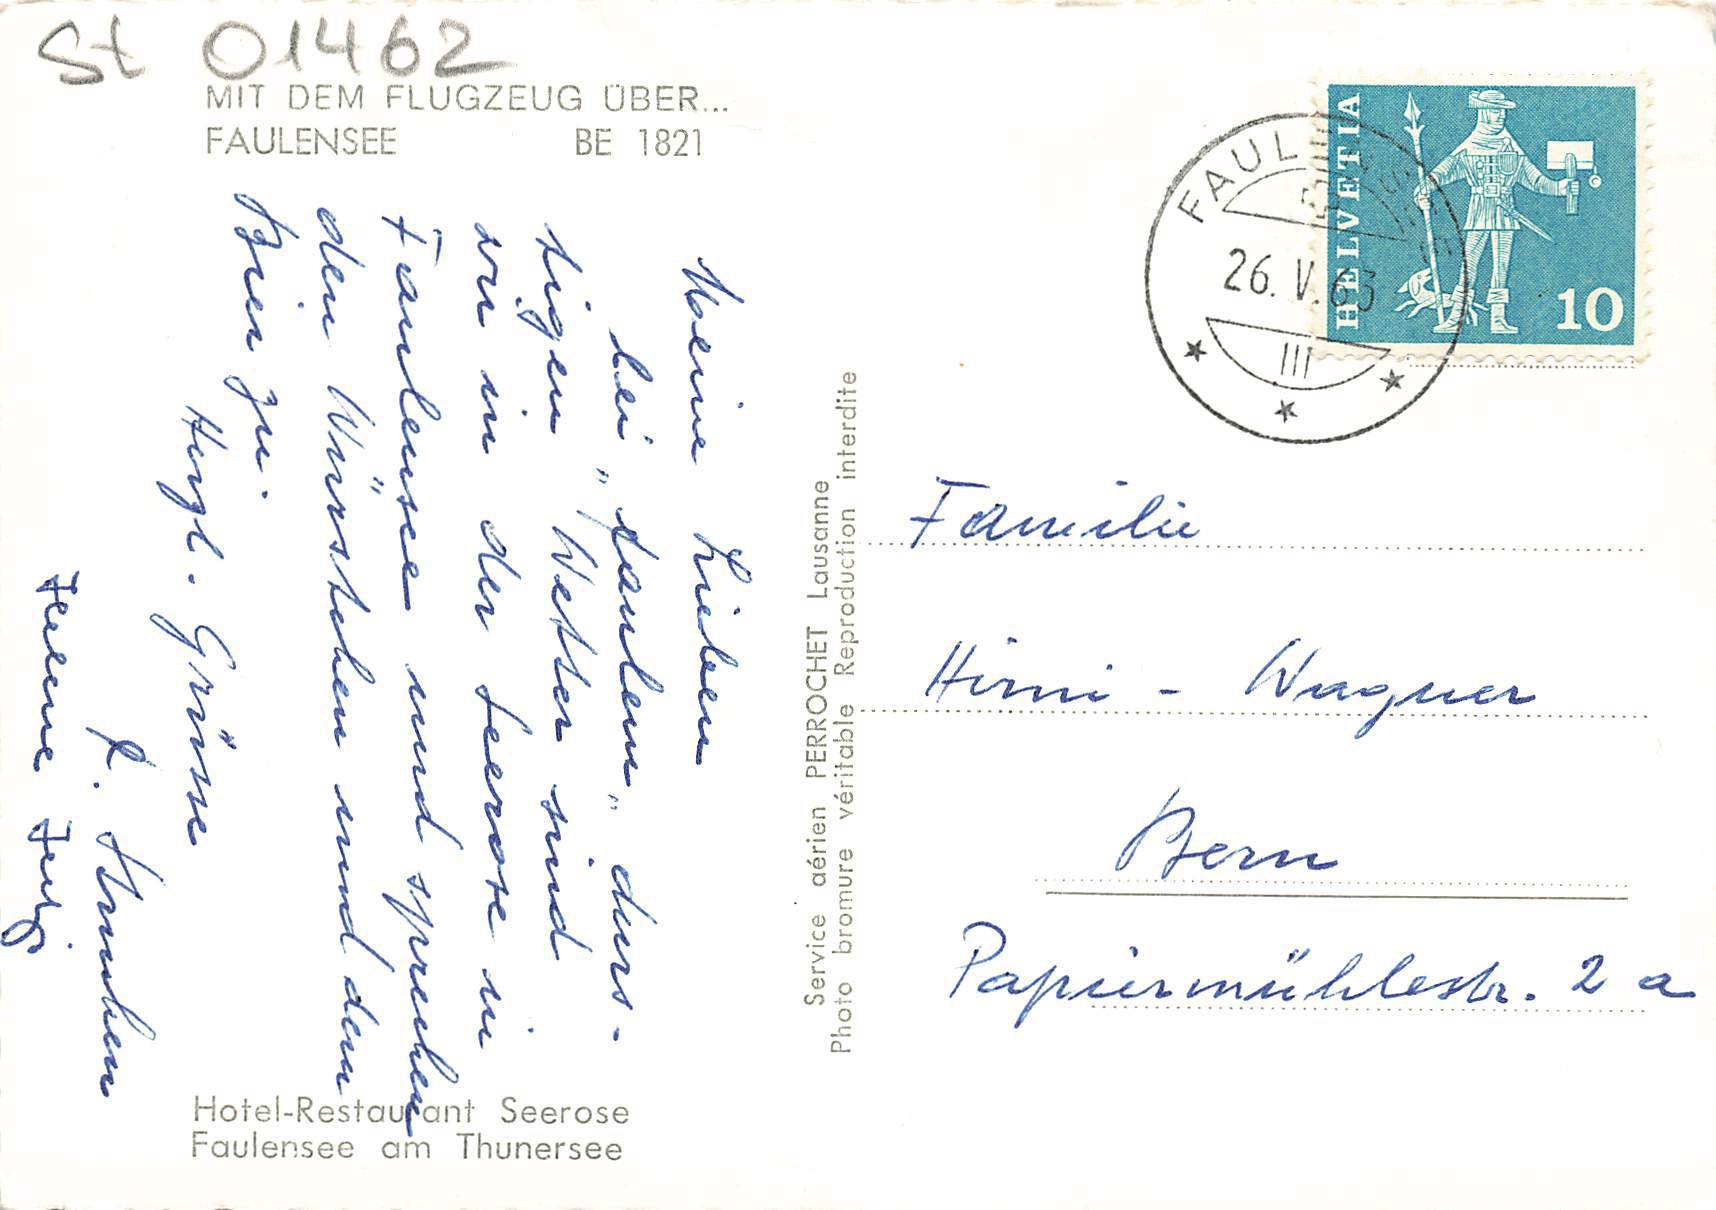 St 01462
MIT DEM FLUGZEUG ÜBER...
FAULENSEE BE 1821
Meine Lieben
bei "faulem" duns-
tigen Wetter sind
wir in der Seerose in
Faulensee und sprechen
dem Würstchen und dem
Bier zu.
Herzl. Grüsse
Hotel-Restaurant Seerose
Faulensee am Thunersee
Service aérien PERROCHET Lausanne
Photo bromure véritable Reproduction interdite
HELVETIA
10
FAULENSEE
26.V.63
III
Familie
Hirni - Wagner
Bern
Papiermühlestr. 2 a